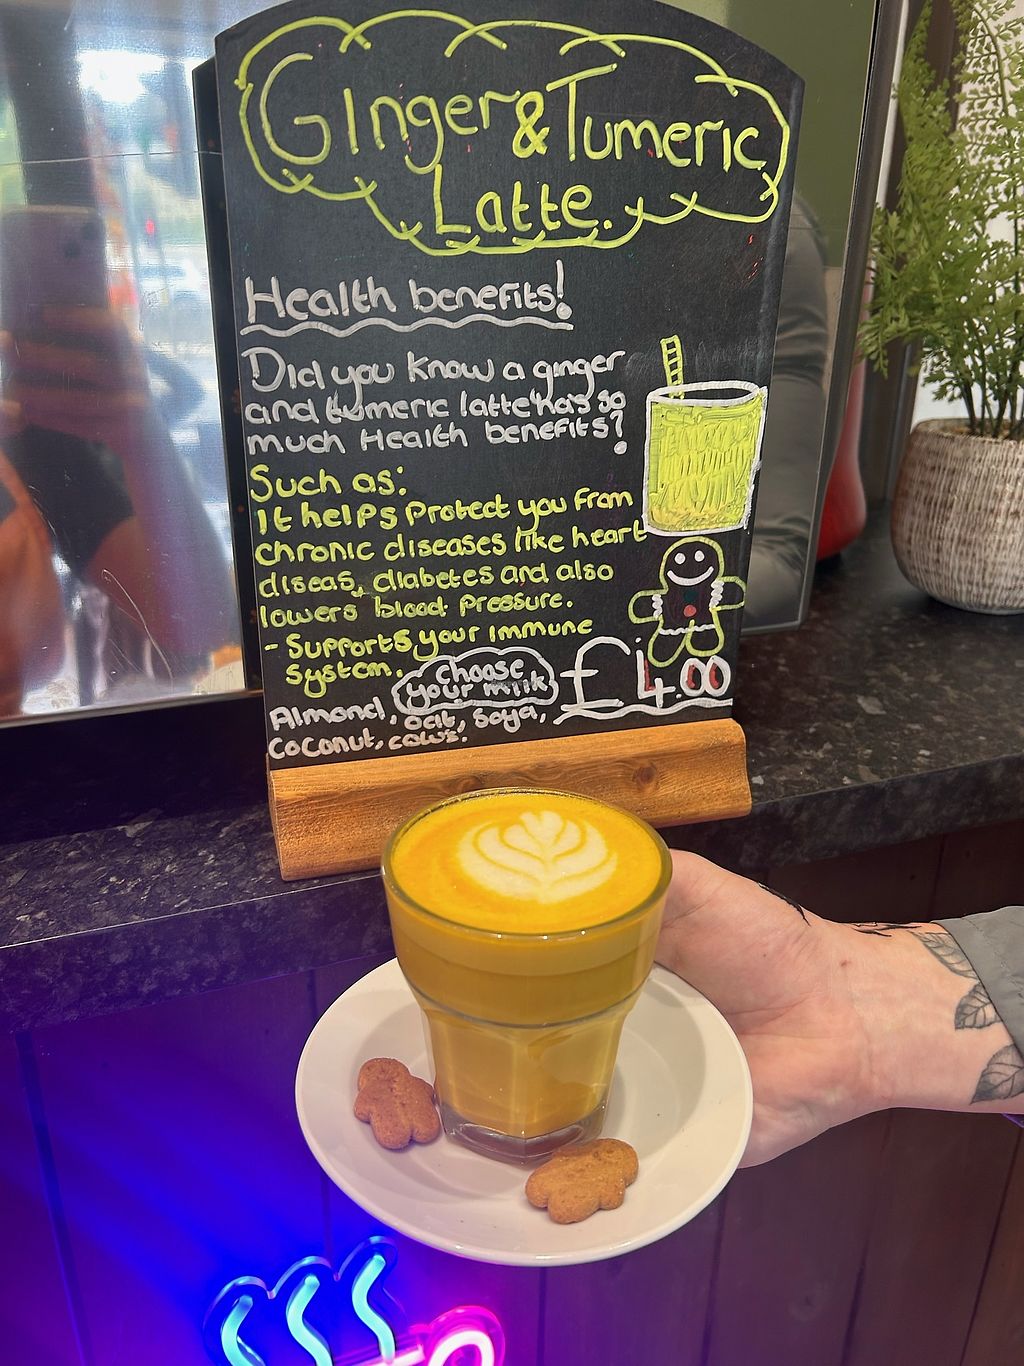 Ginger & Tumeric
Latte.
Health benefits!
Did you know a ginger
and tumeric latte has so
much Health benefits?
Such as:
It helps Protect you from
chronic diseases like heart
diseas, diabetes and also
lowers blood Pressure.
- Supports your immune
system.
Choose
your milk
£4.00
Almond, oat, Soya,
coconut, cows.